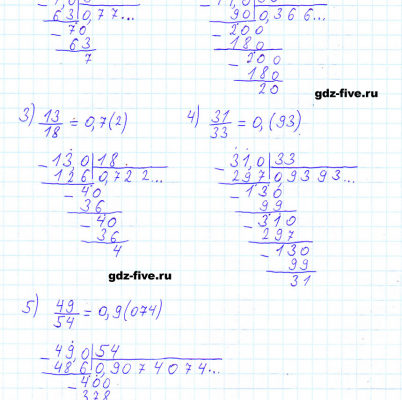 63 0,77...
- 70
63
7
90 0,366...
- 200
180
- 200
180
20
gdz-five.ru
3) 13/18 = 0,7(2)
- 13,0 18
126 0,722...
- 40
36
- 40
36
4
4) 31/33 = 0,(93)
- 31,0 33
297 0,9393...
- 130
99
- 310
297
- 130
99
31
gdz-five.ru
5) 49/54 = 0,9(074)
- 49,0 54
486 0,9074074...
- 400
378